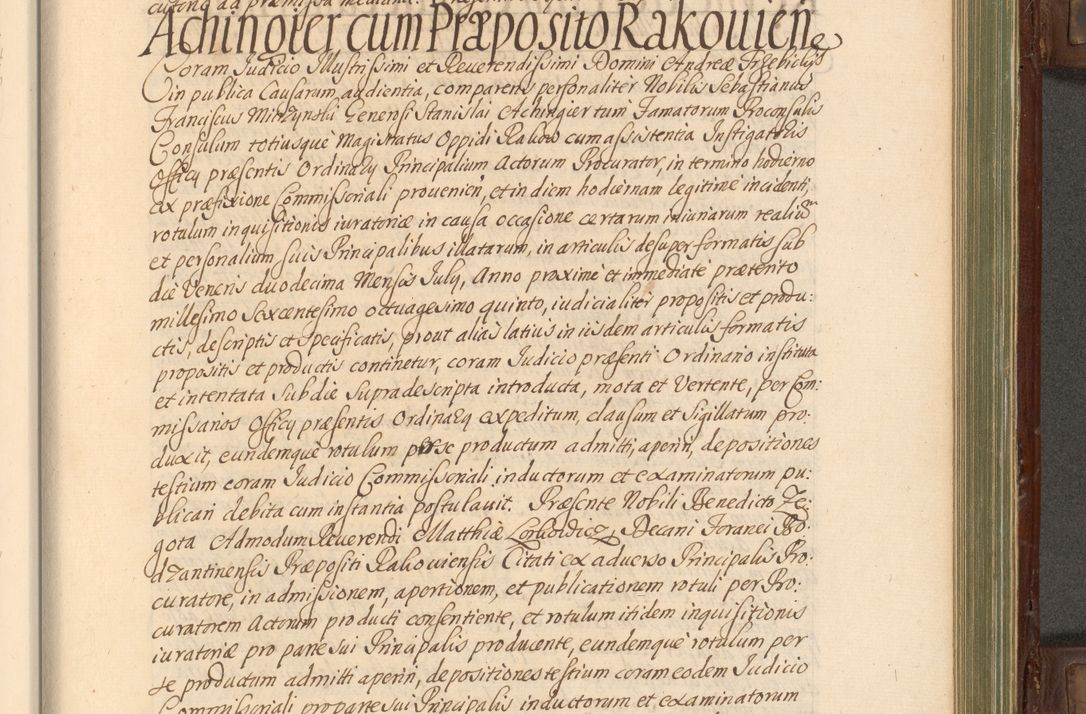 Achingier cum Præposito Rakouien̄
Coram Judicio Illustrissimi et Reuerendissimi Domini Andreæ Trzebicky
in publica Causarum audientia, comparens personaliter Nobilis Sebastianus
Franciscus Mirzynski Generosi Stanislai Achingier tum Famatorum Proconsulis
Consulum totiusque Magistratus Oppidi Rakow cum assistentia Instigatoris
Officij præsentis Ordinarij Principalium Actorum Procurator, in termino hodierno
ex præfixione Commissoriali prouenien̄, et in diem hodiernam legitime incidenti,
rotulum inquisitionis iuratoriæ in causa occasione certarum iniuriarum realium
et personalium suis Principalibus illatarum, in articulis desuper formatis sub
die Veneris duodecima Mensis July, Anno proxime et immediate præterito
millesimo Sexcentesimo octuagesimo quinto, iudicialiter propositis et produ:
ctis, descriptis et specificatis, prout alias latius in iisdem articulis formatis
propositis et productis continetur, coram Judicio præsenti Ordinario instituta
et intentata sub die supradescripta introducta, mota et Vertente, per Com:
missarios Officij præsentis Ordinarij expeditum, clausum et sigillatum pro:
duxit, eundemque rotulum per se productum admitti, aperiri, depositiones
testium coram Judicio Commissoriali inductorum et examinatorum pu:
blicari debita cum instantia postulauit. Præsente Nobili Benedicto Ze:
gota Admodum Reuerendi Matthiæ Decani Foranei Bo:
dzantinensis Præpositi Rakouiensis Citati ex aduerso Principalis Pro:
curatore, in admissionem, apertionem, et publicationem rotuli per Pro:
curatorem Actorum producti consentiente, et rotulum itidem inquisitionis
iuratoriæ pro parte sui Principalis producente, eundemque rotulum per
se productum admitti aperiri, depositiones testium coram eodem Judicio
Commissoriali pro parte sui Principalis inductorum et examinatorum